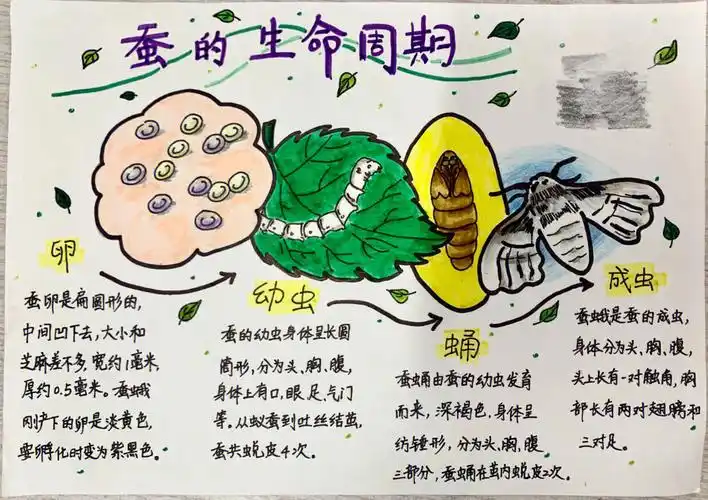 蚕的生命周期
卵
蚕卵是扁圆形的，
中间凹下去，大小和
芝麻差不多，宽约1毫米，
厚约0.5毫米。蚕蛾
刚泸下的卵是淡黄色，
要孵化时变为紫黑色。
幼虫
蚕的幼虫身体呈长圆
筒形，分为头、胸、腹，
身体上有口，眼，足，气门
等。从蚁蚕到吐丝结茧，
蚕共蜕皮4次。
蛹
蚕蛹由蚕的幼虫发育
而来，深褐色，身体呈
纺锤形，分为头、胸、腹
三部分，蚕蛹在茧内蜕皮2次。
成虫
蚕蛾是蚕的成虫，
身体分为头、胸、腹，
头上长有一对触角，胸
部长有两对翅膀和
三对足。